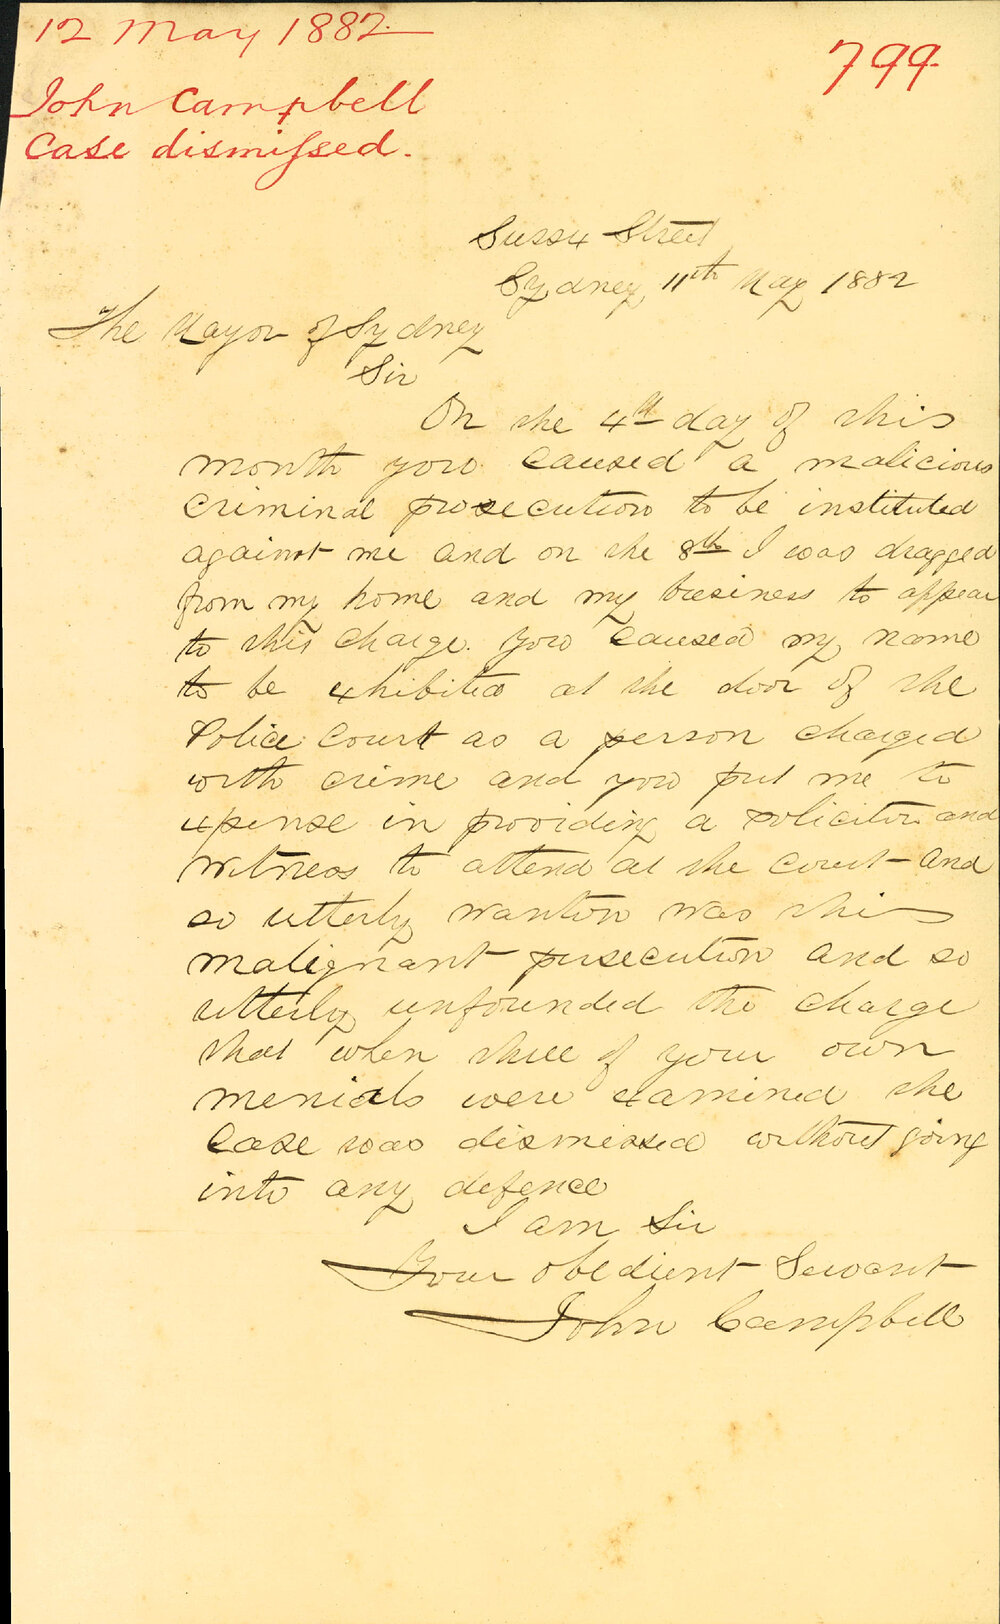 12 May 1882
799
John Campbell
Case dismissed.
Sussex Street
Sydney, 11th May 1882
The Mayor of Sydney
Sir
On the 4th day of this
month you caused a malicious
criminal prosecution to be instituted
against me and on the 8th I was dragged
from my home and my business to appear
to this charge. You caused my name
to be exhibited at the door of the
Police Court as a person charged
with crime and you put me to
expense in providing a solicitor and
witness to attend at the court and
so utterly wanton was this
malignant persecution and so
utterly unfounded the charge
that when three of your own
menials were examined the
case was dismissed without going
into any defence
I am Sir
Your obedient Servant
John Campbell